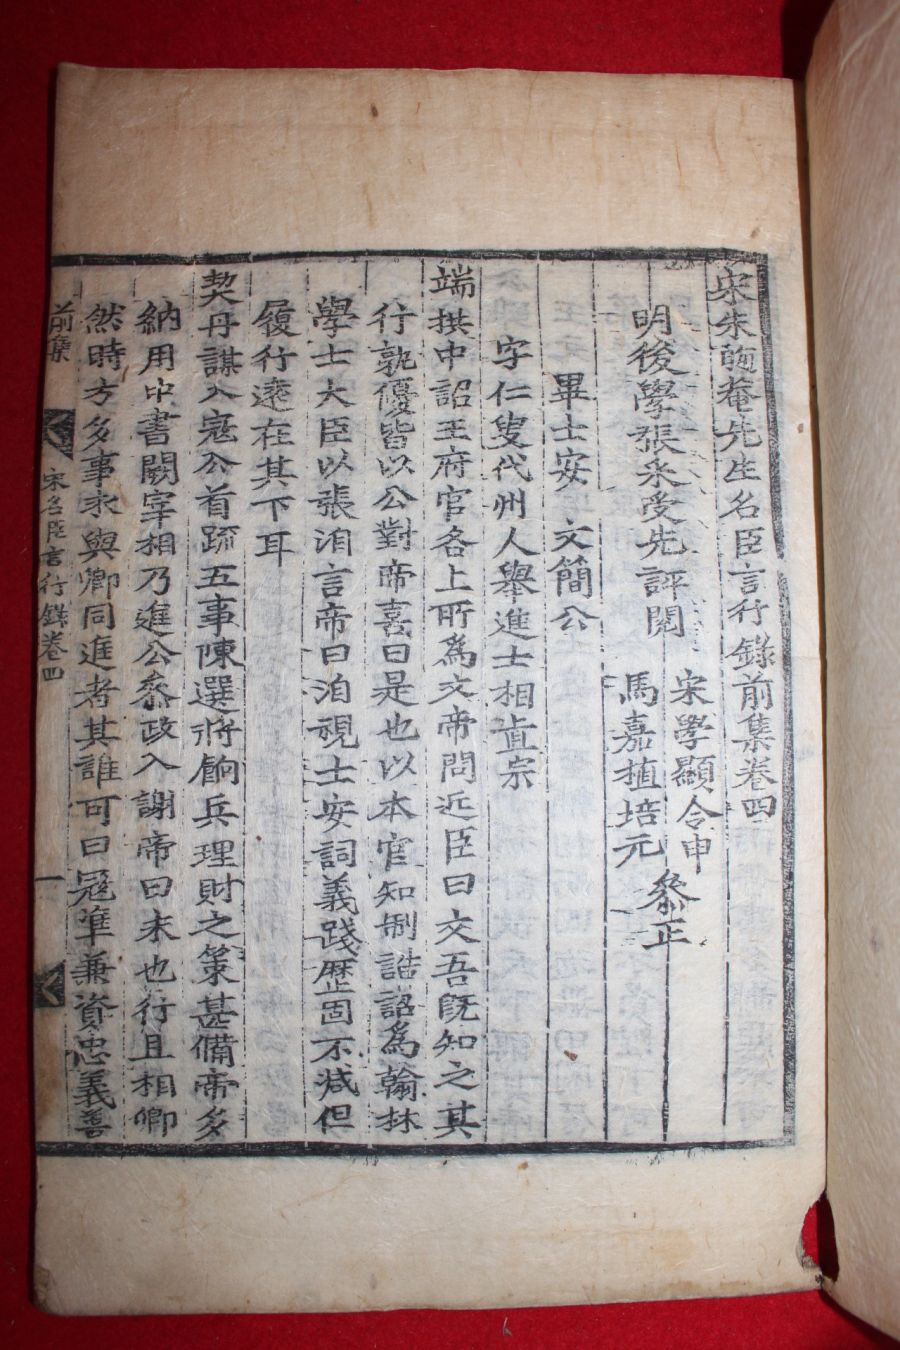 宋朱晦菴先生名臣言行錄前集卷四
明後學張采受先評閱
宋學顯令申
馬嘉植培元
叅正
畢士安 文簡公
字仁叟代州人舉進士相真宗
端拱中詔王府官各上所爲文帝問近臣曰文吾既知之其
行孰優皆以公對帝喜曰是也以本官知制誥詔爲翰林
學士大臣以張洎言帝曰洎視士安詞義踐歷固不減但
履行遠在其下耳
契丹謀入寇公首疏五事陳選將餉兵理財之策甚備帝多
納用中書闕宰相乃進公叅政入謝帝曰未也行且相卿
然時方多事求與卿同進者其誰可曰寇準兼資忠義善
前集 宋名臣言行錄卷四 一